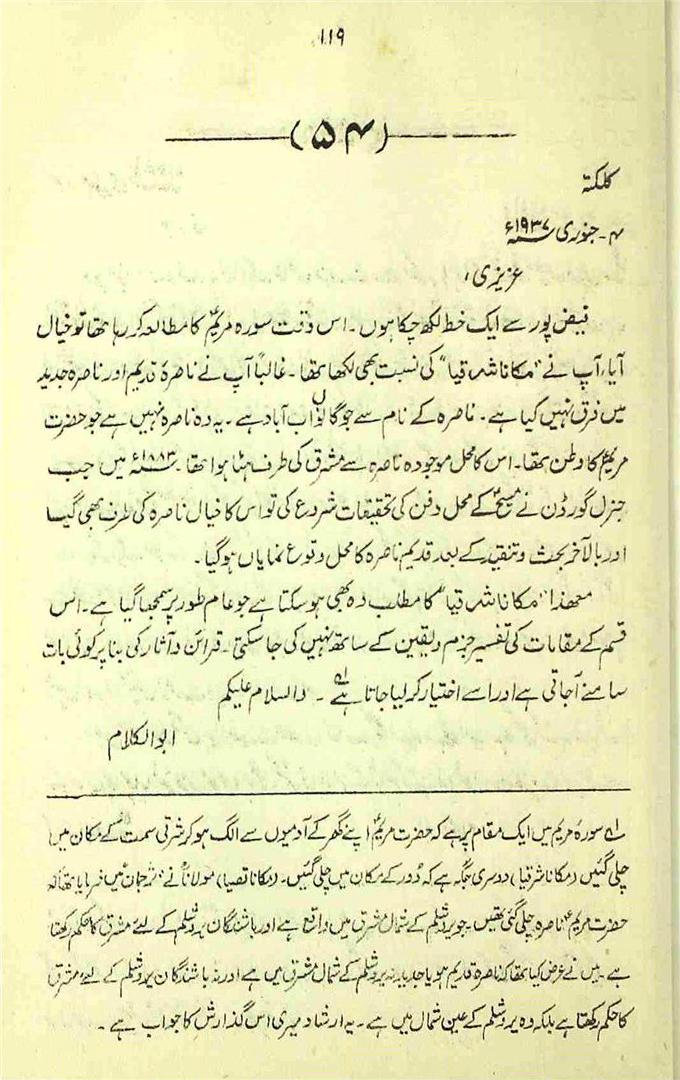 ۱۱۹
(۵۴)
کلکتہ
۴۔ جنوری ۱۹۳۷ء
عزیزی،
فیض پور سے ایک خط لکھ چکا ہوں۔ اس وقت سورہ مریمؑ کا مطالعہ کر رہا تھا تو خیال
آیا، آپ نے "مکانا شرقیا" کی نسبت بھی لکھا تھا۔ غالباً آپ نے ناصرۂ قدیم اور ناصرۂ جدید
میں فرق نہیں کیا ہے۔ ناصرہ کے نام سے جو گاؤں اب آباد ہے۔ یہ وہ ناصرہ نہیں ہے جو حضرت
مریمؑ کا وطن تھا۔ اس کا محل موجودہ ناصرہ سے مشرق کی طرف ہٹا ہوا تھا۔ ۱۸۸۳ء میں جب
جنرل گورڈن نے مسیحؑ کے محل دفن کی تحقیقات شروع کی تو اس کا خیال ناصرہ کی طرف بھی گیا
اور بالآخر بحث و تنقید کے بعد قدیم ناصرہ کا محل وقوع نمایاں ہوگیا۔
معھذا "مکانا شرقیا" کا مطلب وہ بھی ہوسکتا ہے جو عام طور پر سمجھا گیا ہے۔ اس
قسم کے مقامات کی تفسیر جزم و یقین کے ساتھ نہیں کی جاسکتی۔ قرائن و آثار کی بنا پر کوئی بات
سامنے آجاتی ہے اور اسے اختیار کر لیا جاتا ہے؂۱۔ والسلام علیکم
ابوالکلام
؂۱ سورۂ مریم میں ایک مقام پر ہے کہ حضرت مریمؑ اپنے گھر کے آدمیوں سے الگ ہو کر شرقی سمت کے مکان میں
چلی گئیں (مکانا شرقیا) دوسری جگہ ہے کہ دُور کے مکان میں چلی گئیں۔ (مکانا قصیا) مولاناؒ نے "ترجمان" میں فرمایا تھا کہ
حضرت مریمؑ ناصرہ چلی گئی تھیں۔ جو یروشلم کے شمال مشرق میں واقع ہے اور باشندگان یروشلم کے لئے مشرق کا حکم رکھتا
ہے۔ میں نے عرض کیا تھا کہ ناصرہ قدیم ہو یا جدید نہ یروشلم کے شمال مشرق میں ہے اور نہ باشندگان یروشلم کے لئے مشرق
کا حکم رکھتا ہے بلکہ وہ یروشلم کے عین شمال میں ہے۔ یہ ارشاد میری اس گذارش کا جواب ہے۔